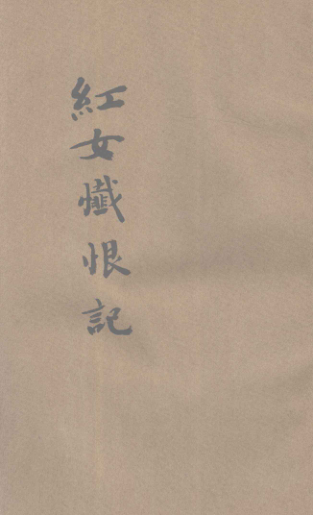 紅女懺恨記